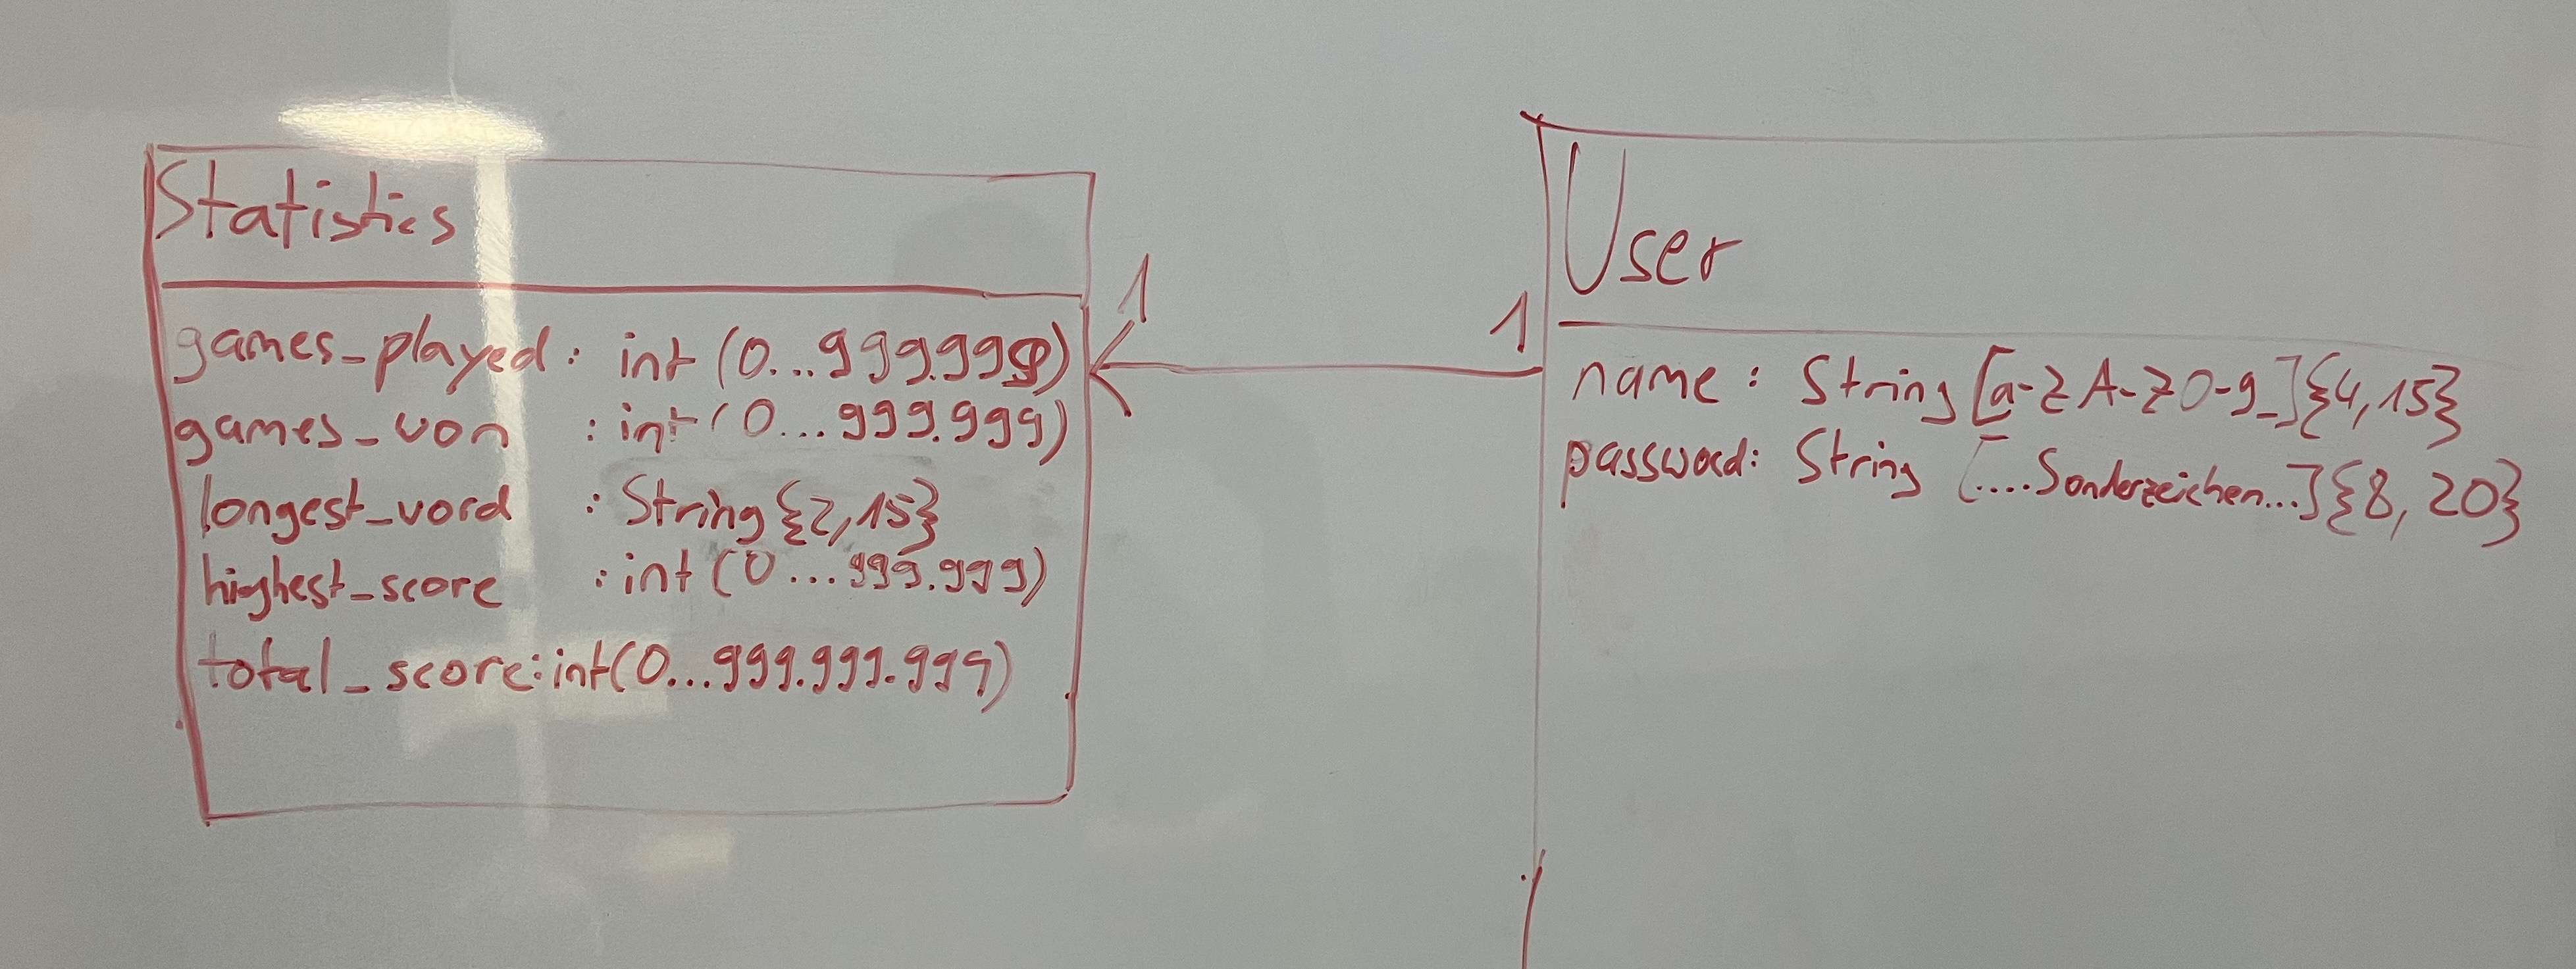 Statistics
games_played : int (0...999.999)
games_won : int (0...999.999)
longest_word : String {2,15}
highest_score : int (0...999.999)
total_score: int(0...999.999.999)
1
1
User
name : String [a-z A-Z 0-9_]{4,15}
password: String [....Sonderzeichen...]{8, 20}